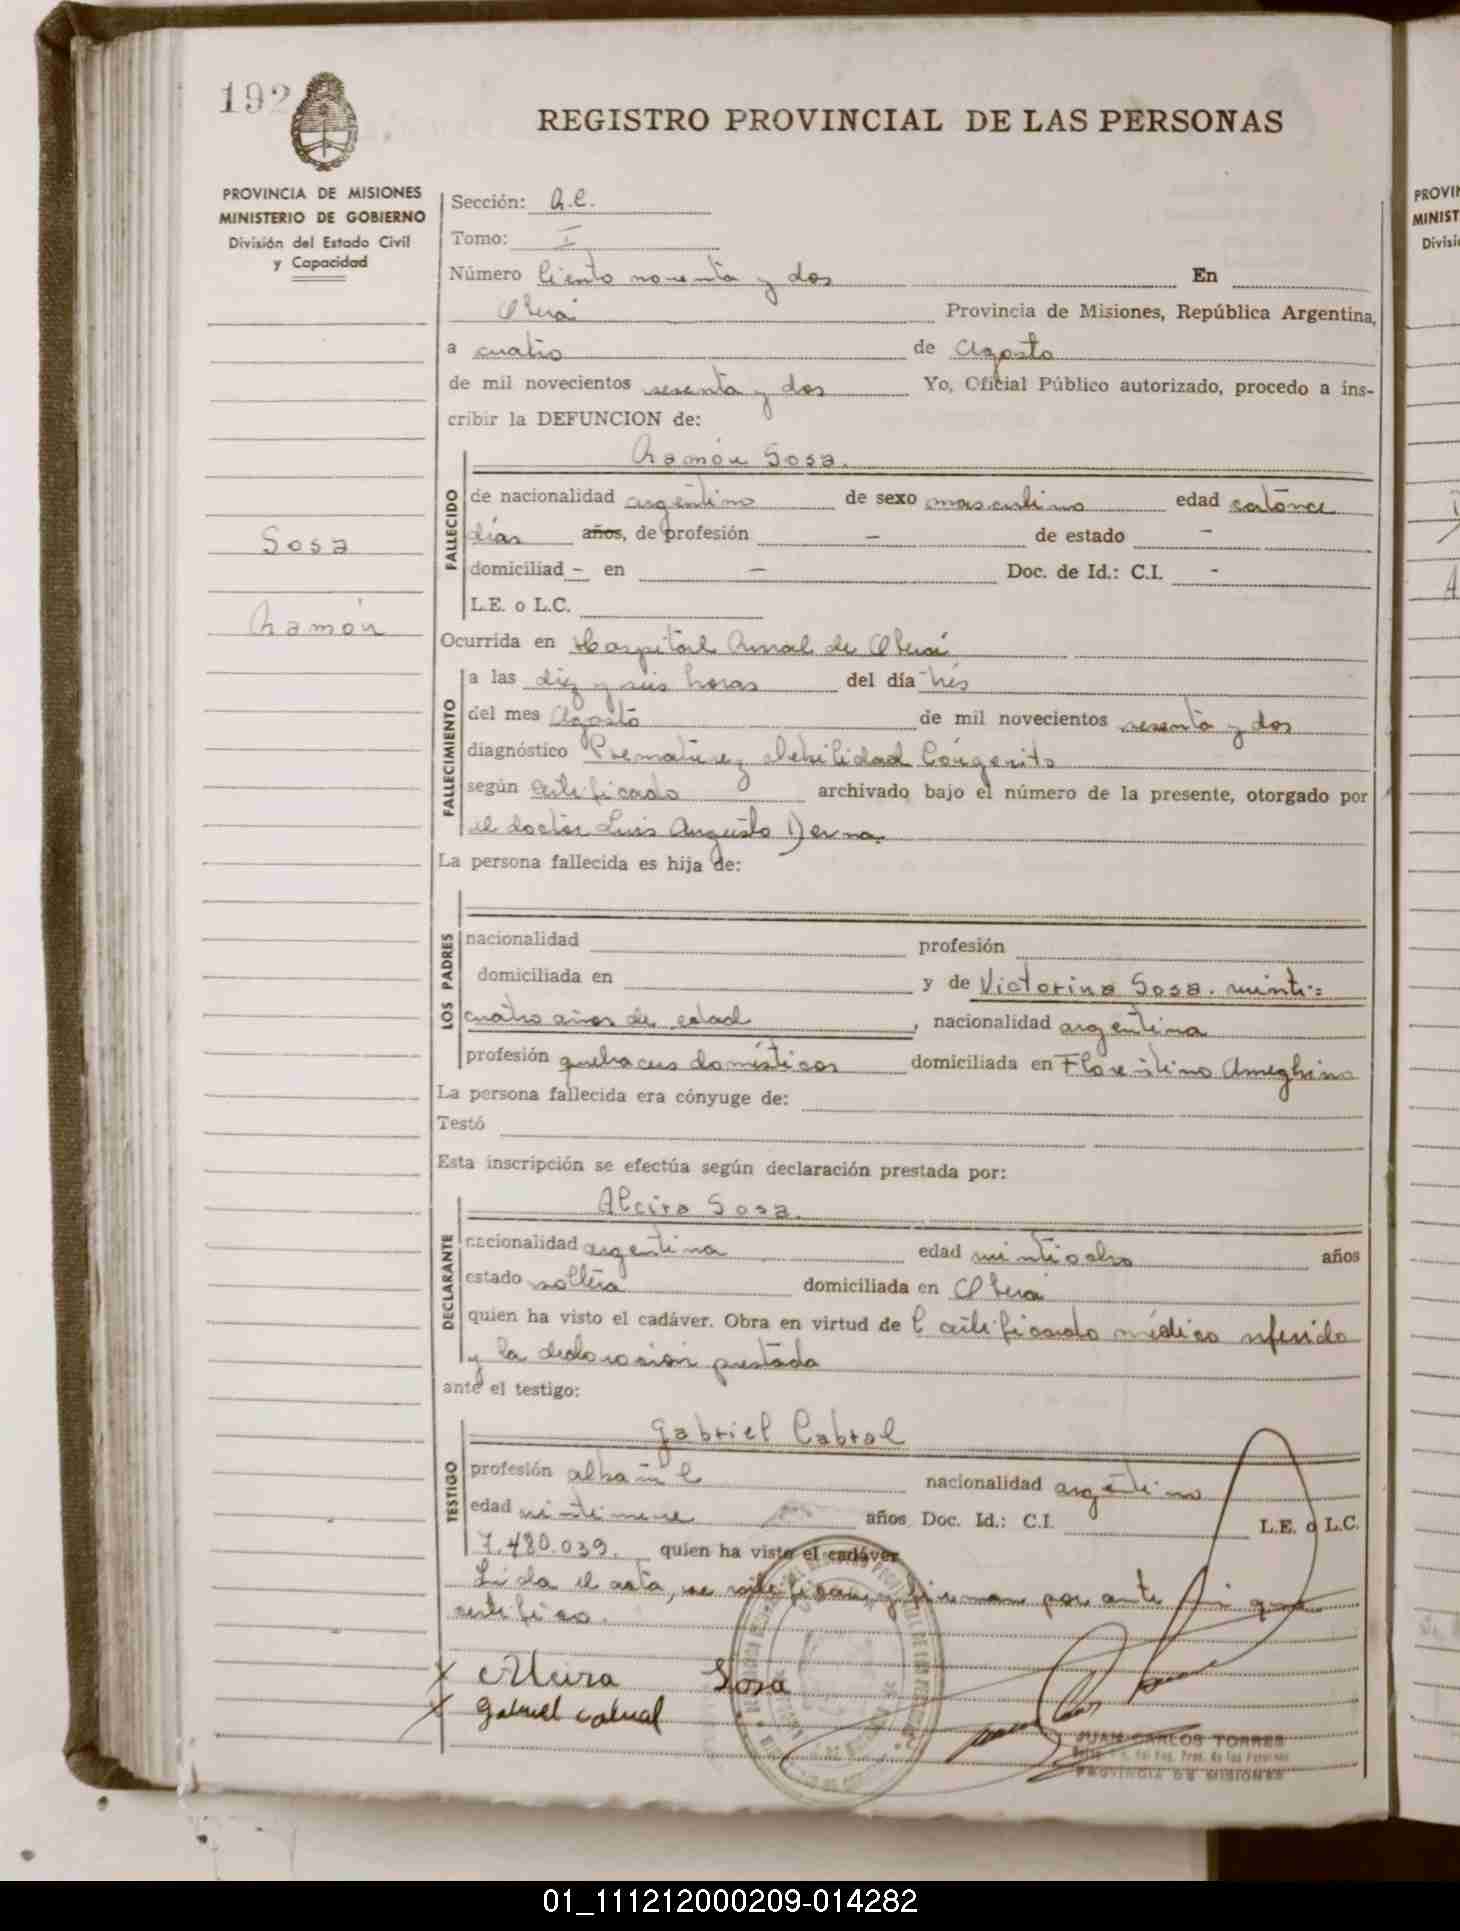 192
REGISTRO PROVINCIAL DE LAS PERSONAS
PROVINCIA DE MISIONES
MINISTERIO DE GOBIERNO
División del Estado Civil
y Capacidad
Sosa
Ramón
Sección: A.C.
Tomo: I
Número Ciento noventa y dos En
Oberá Provincia de Misiones, República Argentina,
a cuatro de Agosto
de mil novecientos sesenta y dos Yo, Oficial Público autorizado, procedo a ins-
cribir la DEFUNCION de:
Ramón Sosa.
FALLECIDO
de nacionalidad argentino de sexo masculino edad catorce
días años, de profesión - de estado -
domiciliad - en - Doc. de Id.: C.I. -
L.E. o L.C.
Ocurrida en Hospital Rural de Oberá
FALLECIMIENTO
a las diez y seis horas del día tres
del mes Agosto de mil novecientos sesenta y dos
diagnóstico Prematurez debilidad Congenita
según certificado archivado bajo el número de la presente, otorgado por
el doctor Luis Augusto Derna.
La persona fallecida es hija de:
LOS PADRES
nacionalidad profesión
domiciliada en y de Victorina Sosa. veinti=
cuatro años de edad, nacionalidad argentina
profesión quehaceres domésticos domiciliada en Florentino Ameghino
La persona fallecida era cónyuge de:
Testó
Esta inscripción se efectúa según declaración prestada por:
Alcira Sosa.
DECLARANTE
nacionalidad argentina edad veintiocho años
estado soltera domiciliada en Oberá
quien ha visto el cadáver. Obra en virtud de l certificado médico referido
y la declaración prestada
ante el testigo:
Gabriel Cabral
TESTIGO
profesión albañil nacionalidad argentino
edad veintinueve años Doc. Id.: C.I. L.E. o L.C.
7.480.039. quien ha visto el cadáver
Leída el acta, se ratifican y firman por ante mi que
certifico.
x Alcira Sosa
x Gabriel Cabral
JUAN CARLOS TORRES
PROVINCIA DE MISIONES
PROVIN
MINIST
Divisi
01_111212000209-014282